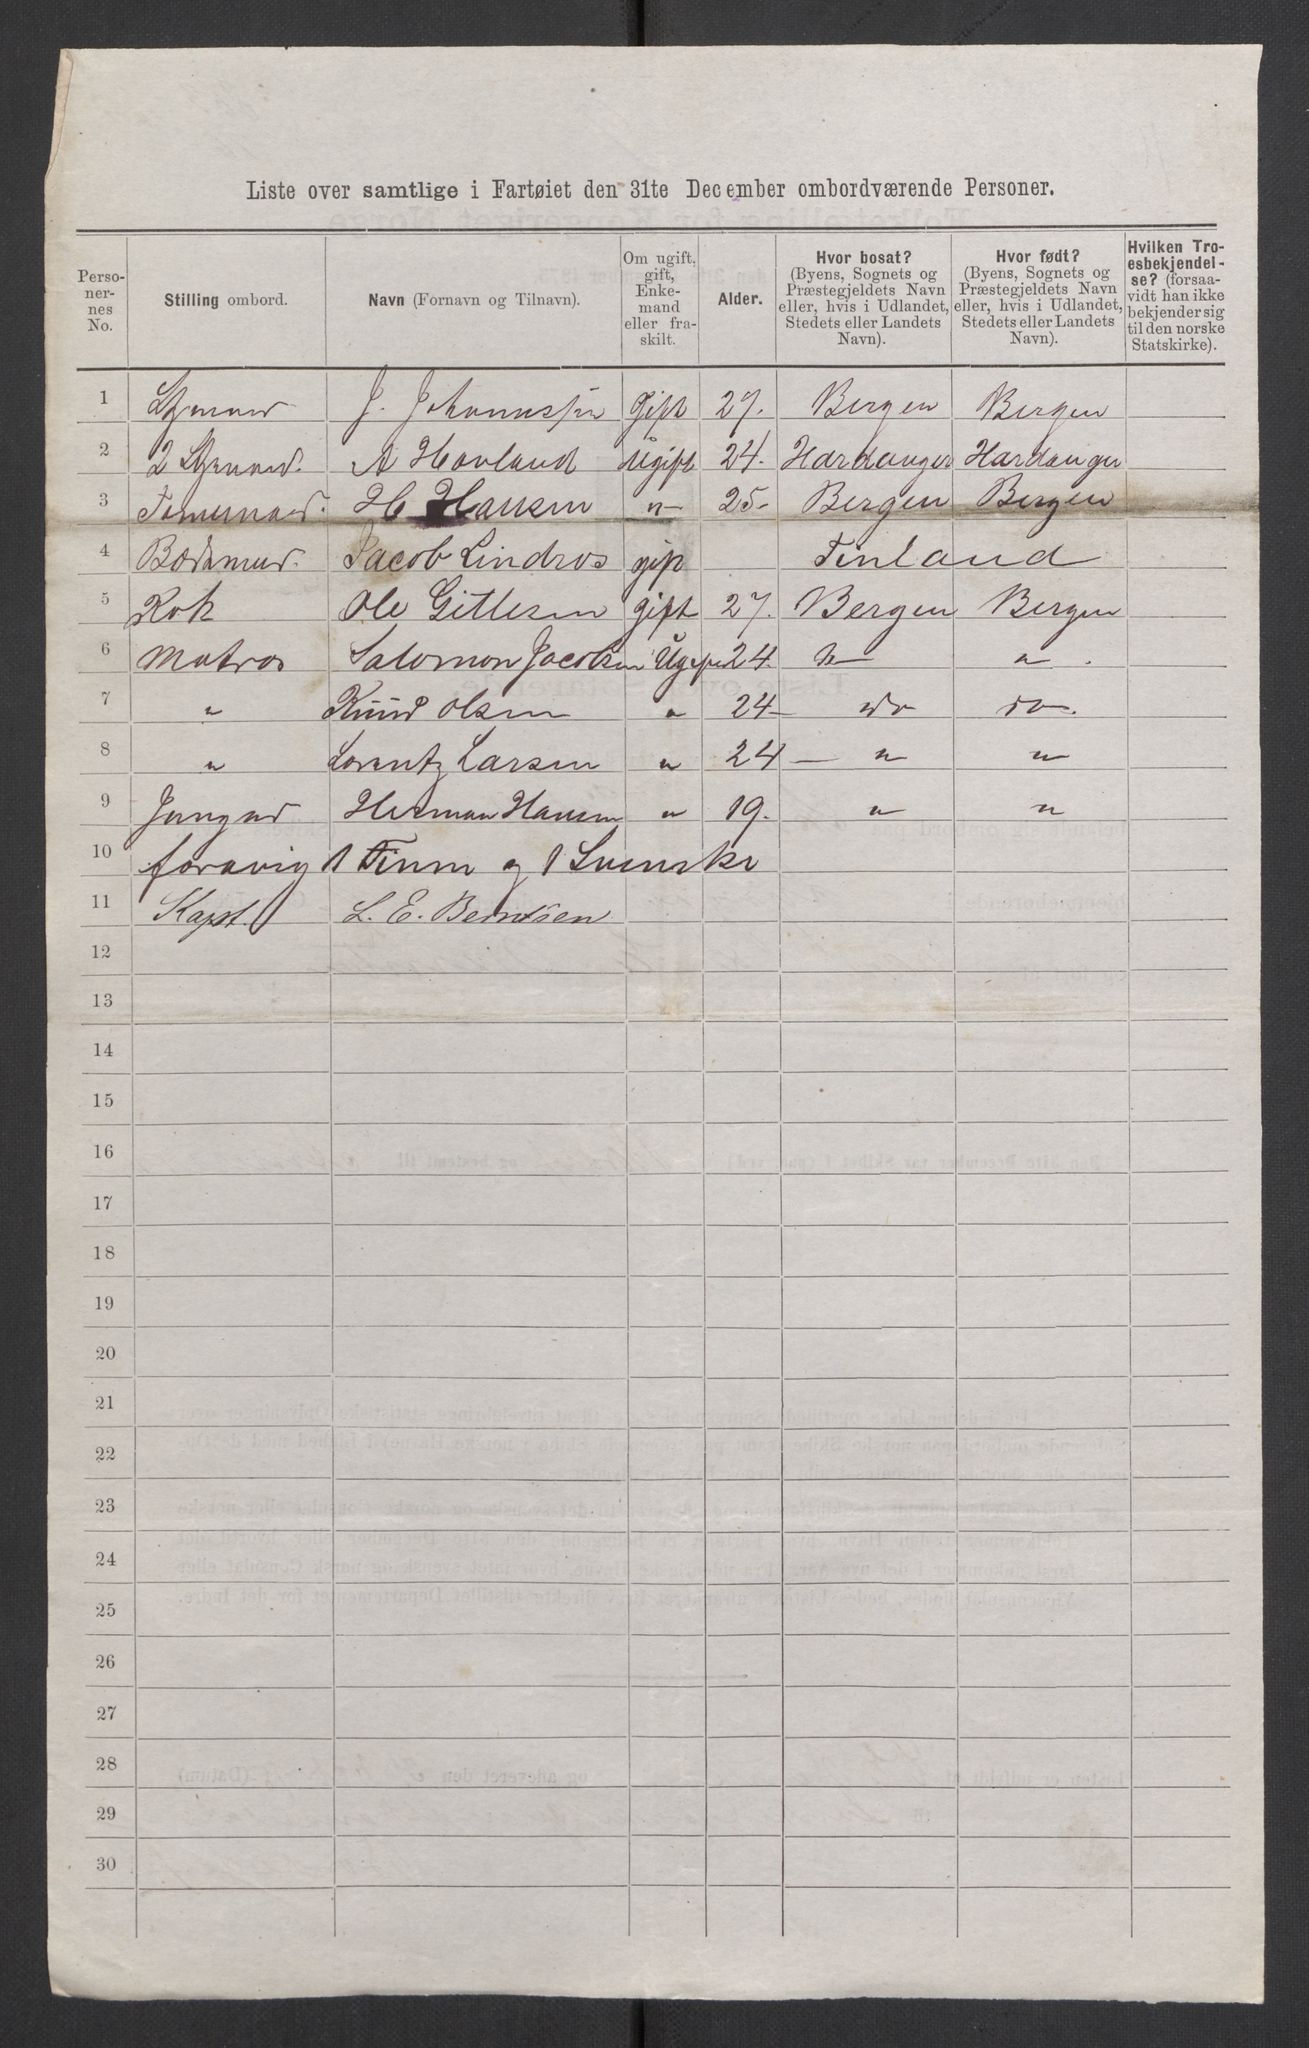 Liste over samtlige i Fartøiet den 31te December ombordværende Personer.
Personernes No. | Stilling ombord. | Navn (Fornavn og Tilnavn). | Om ugift, gift, Enkemand eller fraskilt. | Alder. | Hvor bosat? (Byens, Sognets og Præstegjeldets Navn eller, hvis i Udlandet, Stedets eller Landets Navn). | Hvor født? (Byens, Sognets og Præstegjeldets Navn eller, hvis i Udlandet, Stedets eller Landets Navn). | Hvilken Troesbekjendelse? (forsaavidt han ikke bekjender sig til den norske Statskirke).
1 Styrmand J. Johannesen Gift 27. Bergen Bergen
2 2 Styrmand. A Hovland Ugift 24. Hardanger Hardanger
3 Tømmermd. H Hansen "- 25- Bergen Bergen
4 Baadsmd. Jacob Lindros gift Finland
5 Kok Ole Gitlesen gift 27. Bergen Bergen
6 Matros Salomon Jacobsen Ugift 24 "- "
7 " Knud Olsen " 24- do do.
8 " Lorentz Larsen " 24 - " "
9 Jungmd Herman Hansen " 19. " "
10 forøvrig 1 Finne og 1 Svenske
11 Kapt. L. E. Berntsen
12
13
14
15
16
17
18
19
20
21
22
23
24
25
26
27
28
29
30